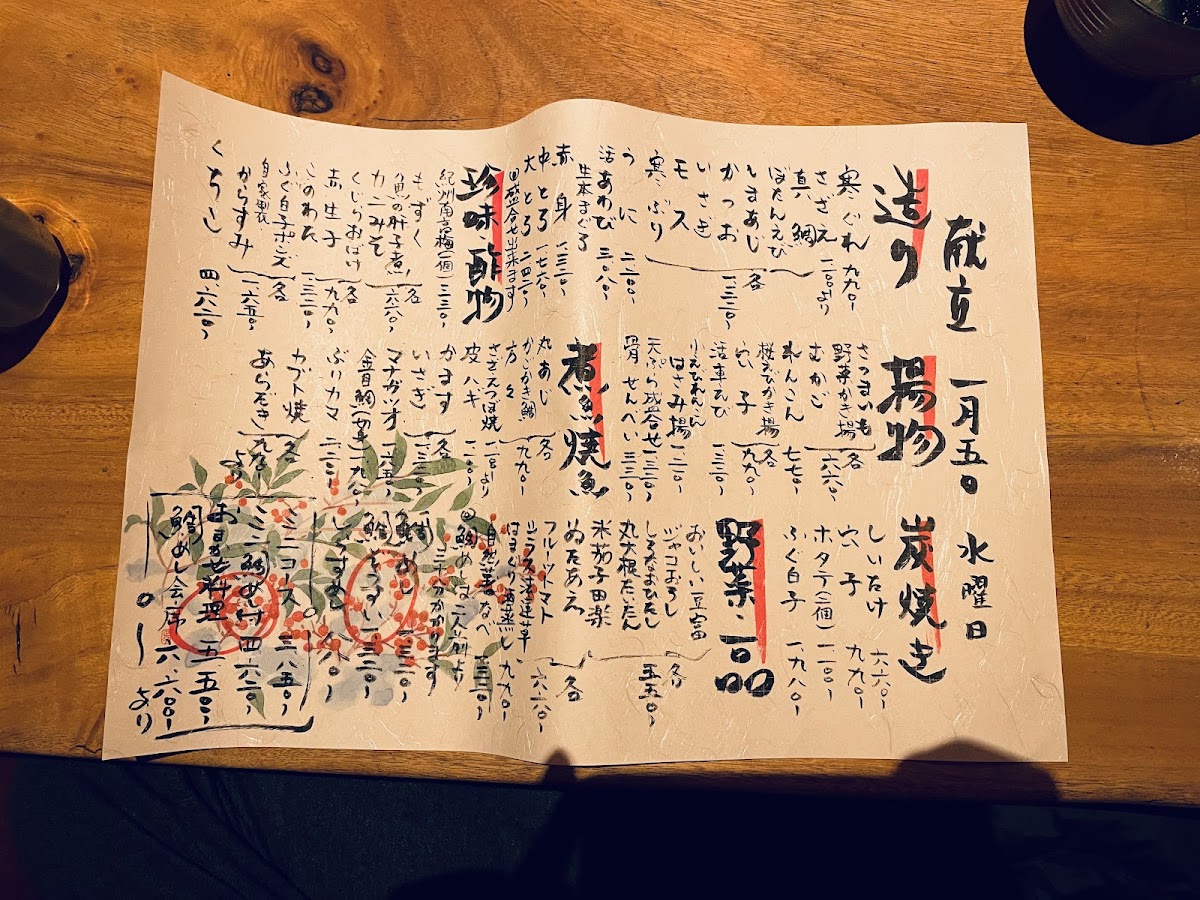 献立 一月五日 水曜日
造り
寒ぐれ 九九〇、
さざえ 一一〇〇、より
真鯛
ぼたんえび
しまあじ
かつお
いさぎ
モス
寒ぶり
各 一三二〇、
うに 二二〇〇、
活あわび 三〇八〇、
生本まぐろ
赤身 一三二〇、
中とろ 一七六〇、
大とろ 二四二〇、
盛合せ出来ます
珍味 酢物
紀州南高梅(一個) 三三〇、
もずく
魚の肝子煮
カニみそ
各 六六〇、
くじらおばけ
赤生子
各 九九〇、
このわた 一三二〇、
ふぐ白子ポンズ
自家製
からすみ
各 一六五〇、
くちこ 四六二〇、
揚物
さつまいも
野菜かき揚
むかご
各 六六〇、
れんこん 七七〇、
桜えびかき揚
穴子
各 九九〇、
活車えび 一三二〇、
りえびれんこん
はさみ揚 一一〇〇、
天ぷら盛合せ 一三二〇、
骨せんべい 三三〇、
煮魚 焼魚
丸あじ
かじかき鯛
方々
各 九九〇、
さざえつぼ焼 一一〇〇、より
皮ハギ 一一〇〇、
かます
いさぎ
各 一三二〇、
マナガツオ 一六五〇、
金目鯛(一切身) 一九八〇、
ブリカマ 二二〇〇、
カブト焼
あらだき
各 九九〇、より
炭焼き
しいたけ 六六〇、
穴子 九九〇、
ホタテ(一個) 一一〇〇、
ふぐ白子 一九八〇、
野菜・一品
おいしい豆富
ジャコおろし
しろなおひたし
丸大根たいたん
米茄子田楽
各 五五〇、
ぬたあえ
フルーツトマト
各 六六〇、
はまぐり酒蒸し 九九〇、
自然薯なべ 一三二〇、
鯛めしは二人前より
三十分かかります
鯛めし 一三二〇、
鯛そうすい 一三二〇、
しらすめし
ミニコース 三八五〇、
ミニ鯛めし付 四六二〇、
おまかせ料理 五五〇〇、
鯛めし会席 六六〇〇、より